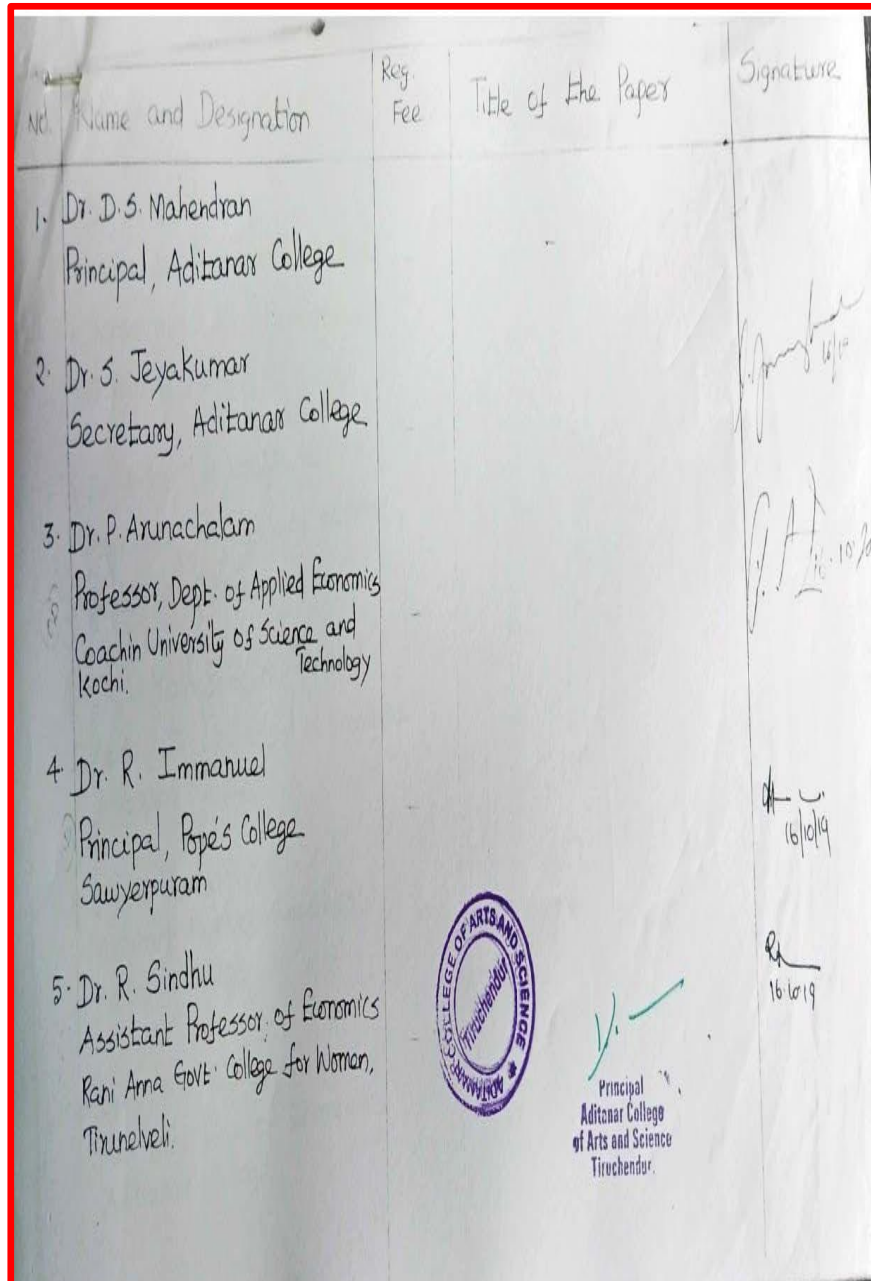 No. Name and Designation Reg. Fee Title of the Paper Signature
1. Dr. D.S. Mahendran
Principal, Aditanar College
2. Dr. S. Jeyakumar
Secretary, Aditanar College
16/10
3. Dr. P. Arunachalam
Professor, Dept. of Applied Economics
Coachin University of Science and
Technology
Kochi.
16.10.20
4. Dr. R. Immanuel
Principal, Pope's College
Sawyerpuram
16/10/19
5. Dr. R. Sindhu
Assistant Professor of Economics
Rani Anna Govt. College for Women,
Tirunelveli.
16.10.19
ADITANAR COLLEGE OF ARTS AND SCIENCE *
Tiruchendur
Principal
Aditanar College
of Arts and Science
Tiruchendur.